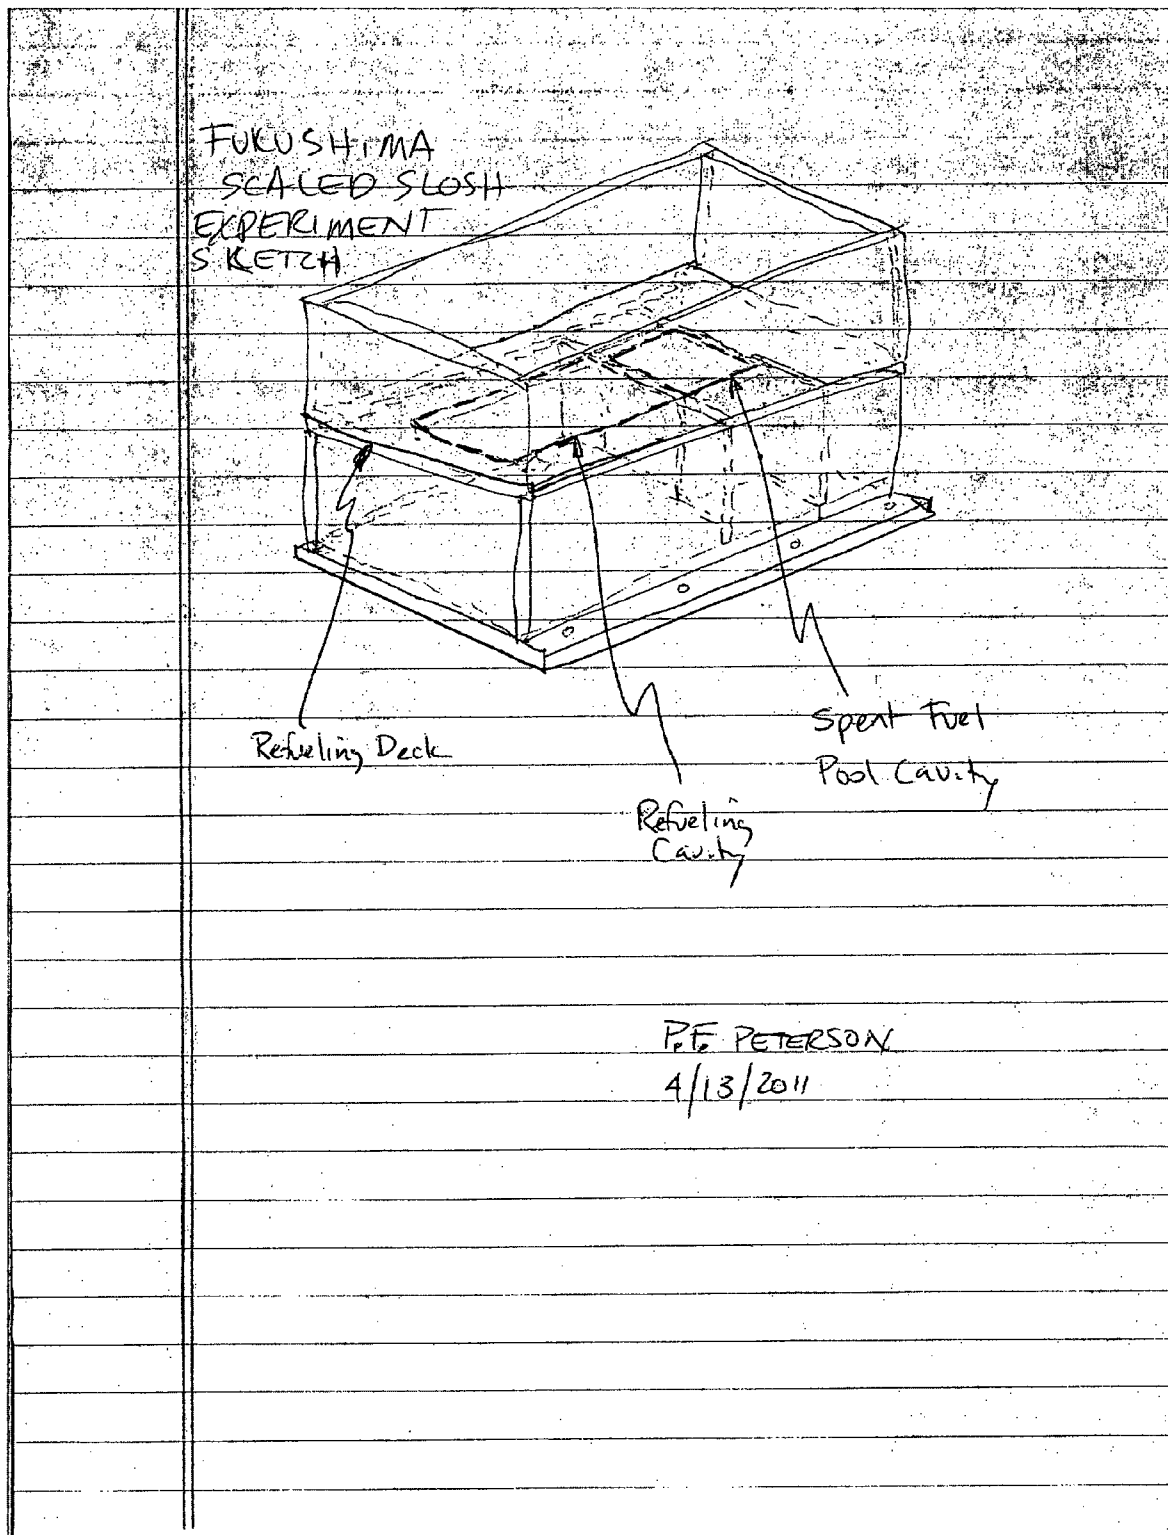 FUKUSHIMA
SCALED SLOSH
EXPERIMENT
SKETCH
Refueling Deck
Spent Fuel
Pool Cavity
Refueling
Cavity
P.F. PETERSON
4/13/2011